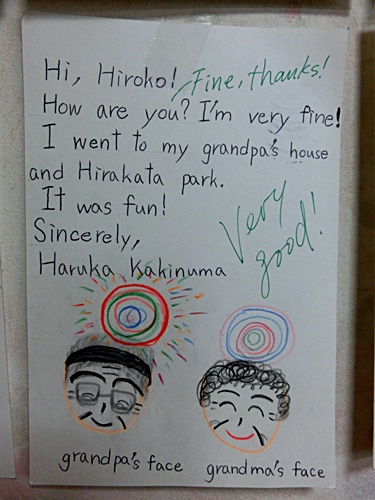 Hi, Hiroko! Fine, thanks!
How are you? I'm very fine!
I went to my grandpa's house
and Hirakata park.
It was fun!
Very
good!
Sincerely,
Haruka Kakinuma
grandpa's face grandma's face